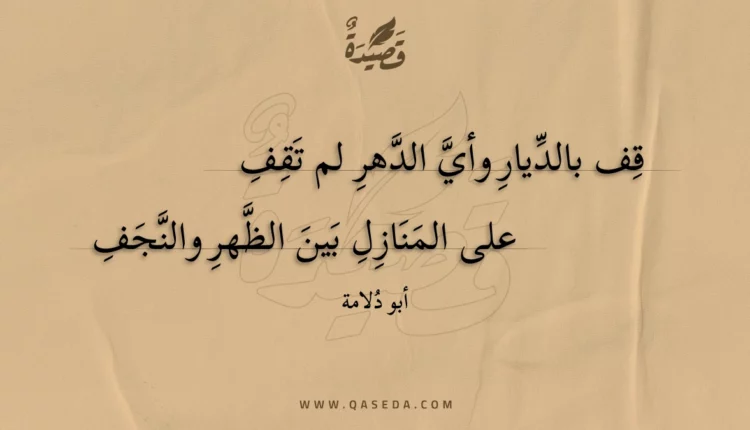 قَصِيْدَةٌ
قِف بالدِّيارِ وأيَّ الدَّهرِ لم تَقِفِ
على المَنَازِلِ بَينَ الظَّهرِ والنَّجَفِ
أبو دُلامة
WWW.QASEDA.COM